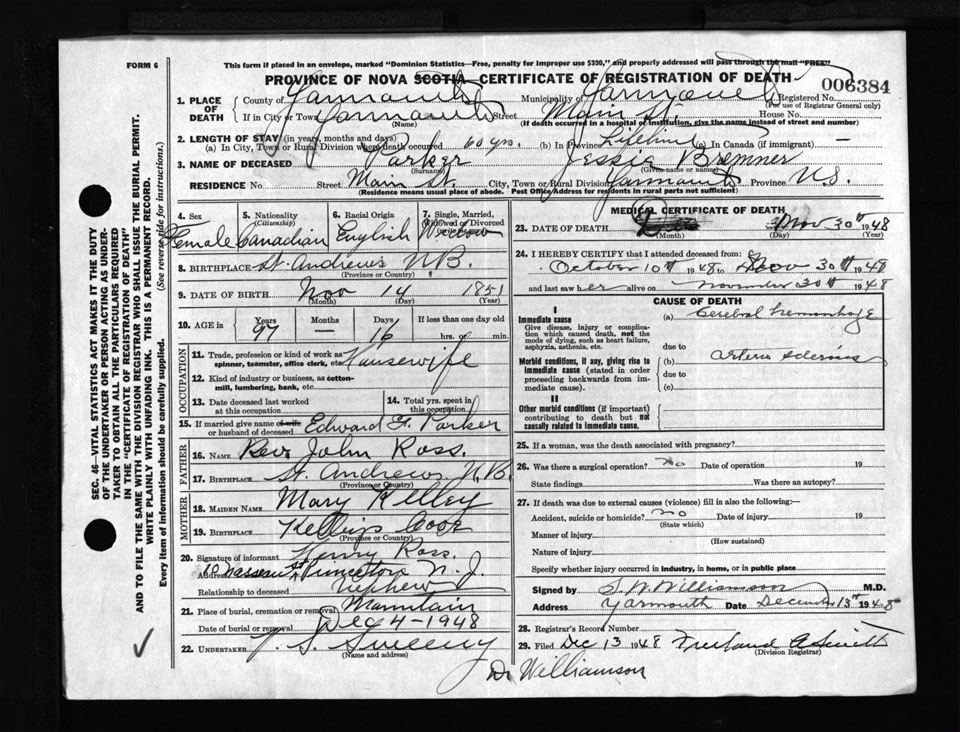 FORM 6
This form if placed in an envelope, marked "Dominion Statistics—Free, penalty for improper use $300," and properly addressed will pass through the mail "FREE"
PROVINCE OF NOVA SCOTIA CERTIFICATE OF REGISTRATION OF DEATH
006384
1. PLACE OF DEATH
County of Yarmouth Municipality of Yarmouth Registered No.
(For use of Registrar General only)
If in City or Town Yarmouth Street Main St. House No.
(Name) (If death occurred in a hospital or institution, give the name instead of street and number)
2. LENGTH OF STAY (in years, months and days)
(a) In City, Town or Rural Division where death occurred 60 yrs. (b) In Province Lifetime (c) In Canada (if immigrant) —
3. NAME OF DECEASED Parker Jessie Bremner
(Surname) (Given name or names)
RESIDENCE No. Street Main St. City, Town or Rural Division Yarmouth Province N.S.
(Residence means usual place of abode. Post Office Address for residents in rural parts not sufficient)
4. Sex Female
5. Nationality (Citizenship) Canadian
6. Racial Origin English
7. Single, Married, Widowed or Divorced Widow
8. BIRTHPLACE St. Andrews N.B.
(Province or Country)
9. DATE OF BIRTH Nov 14 1851
(Month) (Day) (Year)
10. AGE in Years 97 Months — Days 16 If less than one day old hrs. or min.
OCCUPATION
11. Trade, profession or kind of work as spinner, teamster, office clerk, etc. Housewife
12. Kind of industry or business, as cotton-mill, lumbering, bank, etc.
13. Date deceased last worked at this occupation
14. Total yrs. spent in this occupation
15. If married give name of wife or husband of deceased Edward F. Parker
FATHER
16. NAME Rev. John Ross.
17. BIRTHPLACE St. Andrews N.B.
(Province or Country)
MOTHER
18. MAIDEN NAME Mary Kelley
19. BIRTHPLACE
(Province or Country)
20. Signature of informant Henry Ross.
Address 10 Nassau St Princeton N.J.
Relationship to deceased nephew
21. Place of burial, cremation or removal Mountain
Date of burial or removal Dec 4 - 1948
22. UNDERTAKER Sweeny
(Name and address)
MEDICAL CERTIFICATE OF DEATH
23. DATE OF DEATH Dec Nov 30th 1948
(Month) (Day) (Year)
24. I HEREBY CERTIFY that I attended deceased from:
October 10th 1948 to Nov 30th 1948
and last saw her alive on November 30th 1948
CAUSE OF DEATH
I
Immediate cause (a) Cerebral hemorrhage
Give disease, injury or complication which caused death, not the mode of dying, such as heart failure, asphyxia, asthenia, etc.
due to
Morbid conditions, if any, giving rise to immediate cause (stated in order proceeding backwards from immediate cause).
(b) Arterio sclerosis
due to
(c)
II
Other morbid conditions (if important) contributing to death but not causally related to immediate cause.
25. If a woman, was the death associated with pregnancy?
26. Was there a surgical operation? no Date of operation 19
State findings Was there an autopsy?
27. If death was due to external causes (violence) fill in also the following:—
Accident, suicide or homicide? no Date of injury 19
(State which)
Manner of injury
(How sustained)
Nature of injury
Specify whether injury occurred in industry, in home, or in public place
Signed by S. W. Williamson M.D.
Address Yarmouth Date December 13th 1948
28. Registrar's Record Number
29. Filed Dec 13 1948 A Smith
(Division Registrar)
Dr Williamson
SEC. 46—VITAL STATISTICS ACT MAKES IT THE DUTY
OF THE UNDERTAKER OR PERSON ACTING AS UNDER-
TAKER TO OBTAIN ALL THE PARTICULARS REQUIRED
IN THE "CERTIFICATE OF REGISTRATION OF DEATH"
AND TO FILE THE SAME WITH THE DIVISION REGISTRAR WHO SHALL ISSUE THE BURIAL PERMIT.
WRITE PLAINLY WITH UNFADING INK. THIS IS A PERMANENT RECORD.
Every item of information should be carefully supplied. (See reverse side for instructions.)